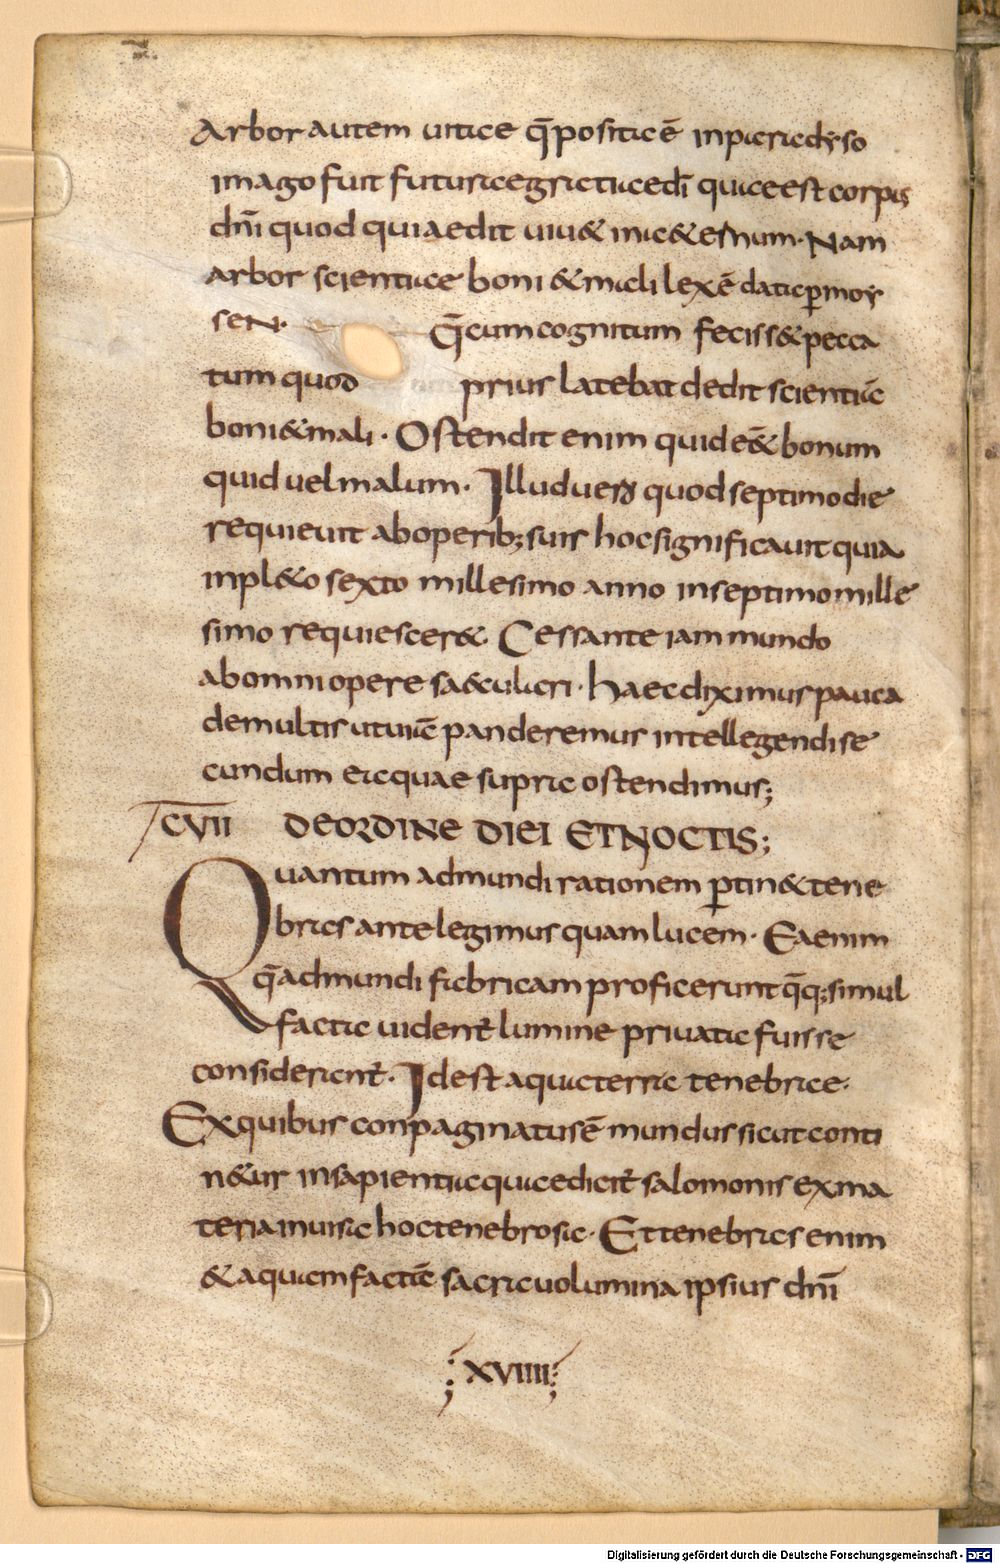 Arbor autem uitae q̄ posita ē in paradyso
imago fuit futurae gratiae di quae est corpus
dn̄i quod qui aedit uiu& in a&ernum. Nam
arbor scientiae boni & mali lex ē data p moy
sen. q̄ cum cognitum feciss& pecca
tum quod prius latebat dedit scientiā
boni & mali. Ostendit enim quid e&̄ bonum
quid uel malum. Illud uero quod septimo die
requieuit ab operib; suis hoc significauit quia
inpl&o sexto millesimo anno in septimo mille
simo requiescer& Cessante iam mundo
ab omni opere saeculari. haec diximus pauca
de multis ut uiā panderemus intellegendi se
cundum ea quae supra ostendimus;
CVII DE ORDINE DIEI ET NOCTIS;
Quantum ad mundi rationem ptin& tene
bras ante legimus quam lucem. Ea enim
q̄ ad mundi fabricam proficerunt q̄q; simul
facta uident̄ lumine priuata fuisse
considerant̄. Id est aqua terra tenebrae.
Ex quibus conpaginatus ē mundus sicut conti
n&ur in sapientia quae dicit̄ salomonis ex ma
teria inuisa hoc tenebrosa. Et tenebras enim
& aquam factā sacra uolumina ipsius dn̄i
; XVIIII ;
Digitalisierung gefördert durch die Deutsche Forschungsgemeinschaft - DFG